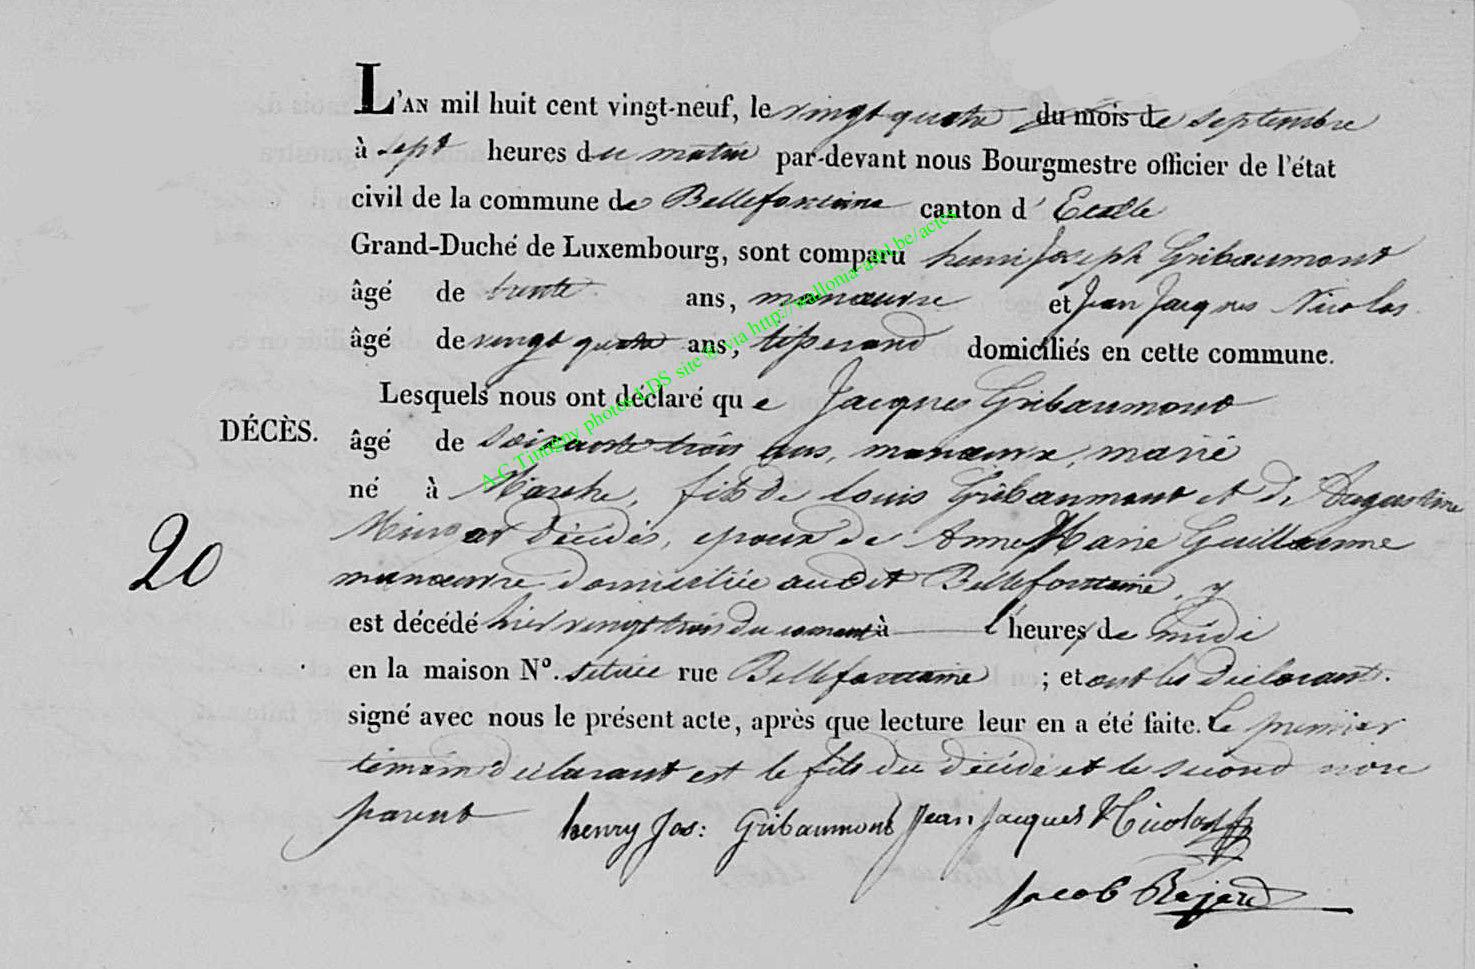 L'AN mil huit cent vingt-neuf, le vingt quatre du mois de septembre
à sept heures du matin par-devant nous Bourgmestre officier de l'état
civil de la commune de Bellefontaine canton d' Etalle
Grand-Duché de Luxembourg, sont comparu henri joseph Gribaumont
âgé de trente ans, manœuvre et Jean Jacques Nicolas
âgé de vingt quatre ans, tisserand domiciliés en cette commune.
Lesquels nous ont déclaré que Jacques Gribaumont
DÉCÈS.
âgé de soixante trois ans, manœuvre, marié
né à Marche, fils de Louis Gribaumont et d' Augustine
20
décédés, epoux de Anne Marie Guillaume
manœuvre domiciliée audit Bellefontaine, y
est décédé hier vingt trois du courant à l'heures de midi
en la maison N°. située rue Bellefontaine ; et ont les déclarant.
signé avec nous le présent acte, après que lecture leur en a été faite. Le premier
témoin déclarant est le fils du décédé et le second non
parent henry Jos: Gribaumont Jean Jacques Nicolas
Jacob
A-C Tintigny photos LDS site © via http://wallonia-asbl.be/actes